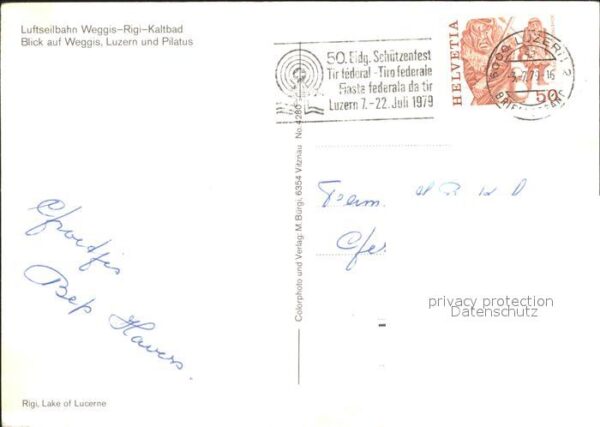 Luftseilbahn Weggis-Rigi-Kaltbad
Blick auf Weggis, Luzern und Pilatus
50. Eidg. Schützenfest
Tir fédéral - Tiro federale
Fiasta federala da tir
Luzern 7. - 22. Juli 1979
HELVETIA
50
6000 LUZERN 2
BRIEFVERSAND
Fam.
Groetjes
Bep
Colorphoto und Verlag: M. Bürgi, 6354 Vitznau No. 4280
privacy protection
Datenschutz
Rigi, Lake of Lucerne